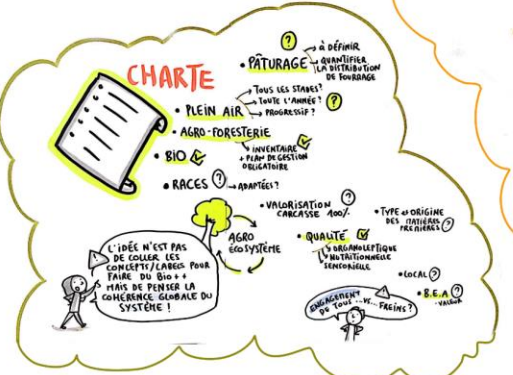 CHARTE
• PÂTURAGE
?
→ à DÉFINIR
→ QUANTIFIER
LA DISTRIBUTION
DE FOURRAGE
• PLEIN AIR
→ TOUS LES STADES?
→ TOUTE L'ANNÉE?
→ PROGRESSIF?
?
• AGRO-FORESTERIE
→ INVENTAIRE
+ PLAN DE GESTION
OBLIGATOIRE
• BIO
• RACES ? → ADAPTÉES?
• VALORISATION
CARCASSE 100%
?
AGRO
ÉCOSYSTÈME
• QUALITÉ
ORGANOLEPTIQUE
NUTRITIONNELLE
SENSORIELLE
• TYPE et ORIGINE
DES MATIÈRES
PREMIÈRES ?
• LOCAL ?
• B.E.A ?
- VALEUR
L'IDÉE N'EST PAS
DE COLLER LES
CONCEPTS/LABELS POUR
FAIRE DU BIO++
MAIS DE PENSER LA
COHÉRENCE GLOBALE DU
SYSTÈME !
ENGAGEMENT
DE TOUS ...VS... FREINS?